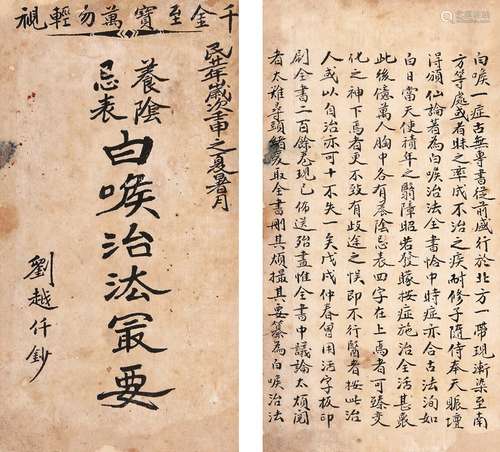 千金至寶萬勿輕視
民廿年歲次壬申之夏暑月
養陰
忌表
白喉治法冣要
劉越仟鈔
白喉一症古無專書從前盛行於北方一帶現漸染至南
方等處或者昧之率成不治之疾耐修子隨侍奉天賑壇
得頒仙論著為白喉治法全書恰中時症亦合古法洵如
白日當天使積年之翳障照若發矇按症施治全活甚衆
此後億萬人胸中各有養陰忌表四字在上焉者可臻變
化之神下焉者更不致有歧途之悞即不行醫者按此治
人或以自治亦可十不失一矣戊戌仲春曾用活字板印
刷全書二百餘卷現已佈送殆盡惟全書中議論太煩閱
者太難尋頭緒爰取全書刪其煩撮其要纂為白喉治法